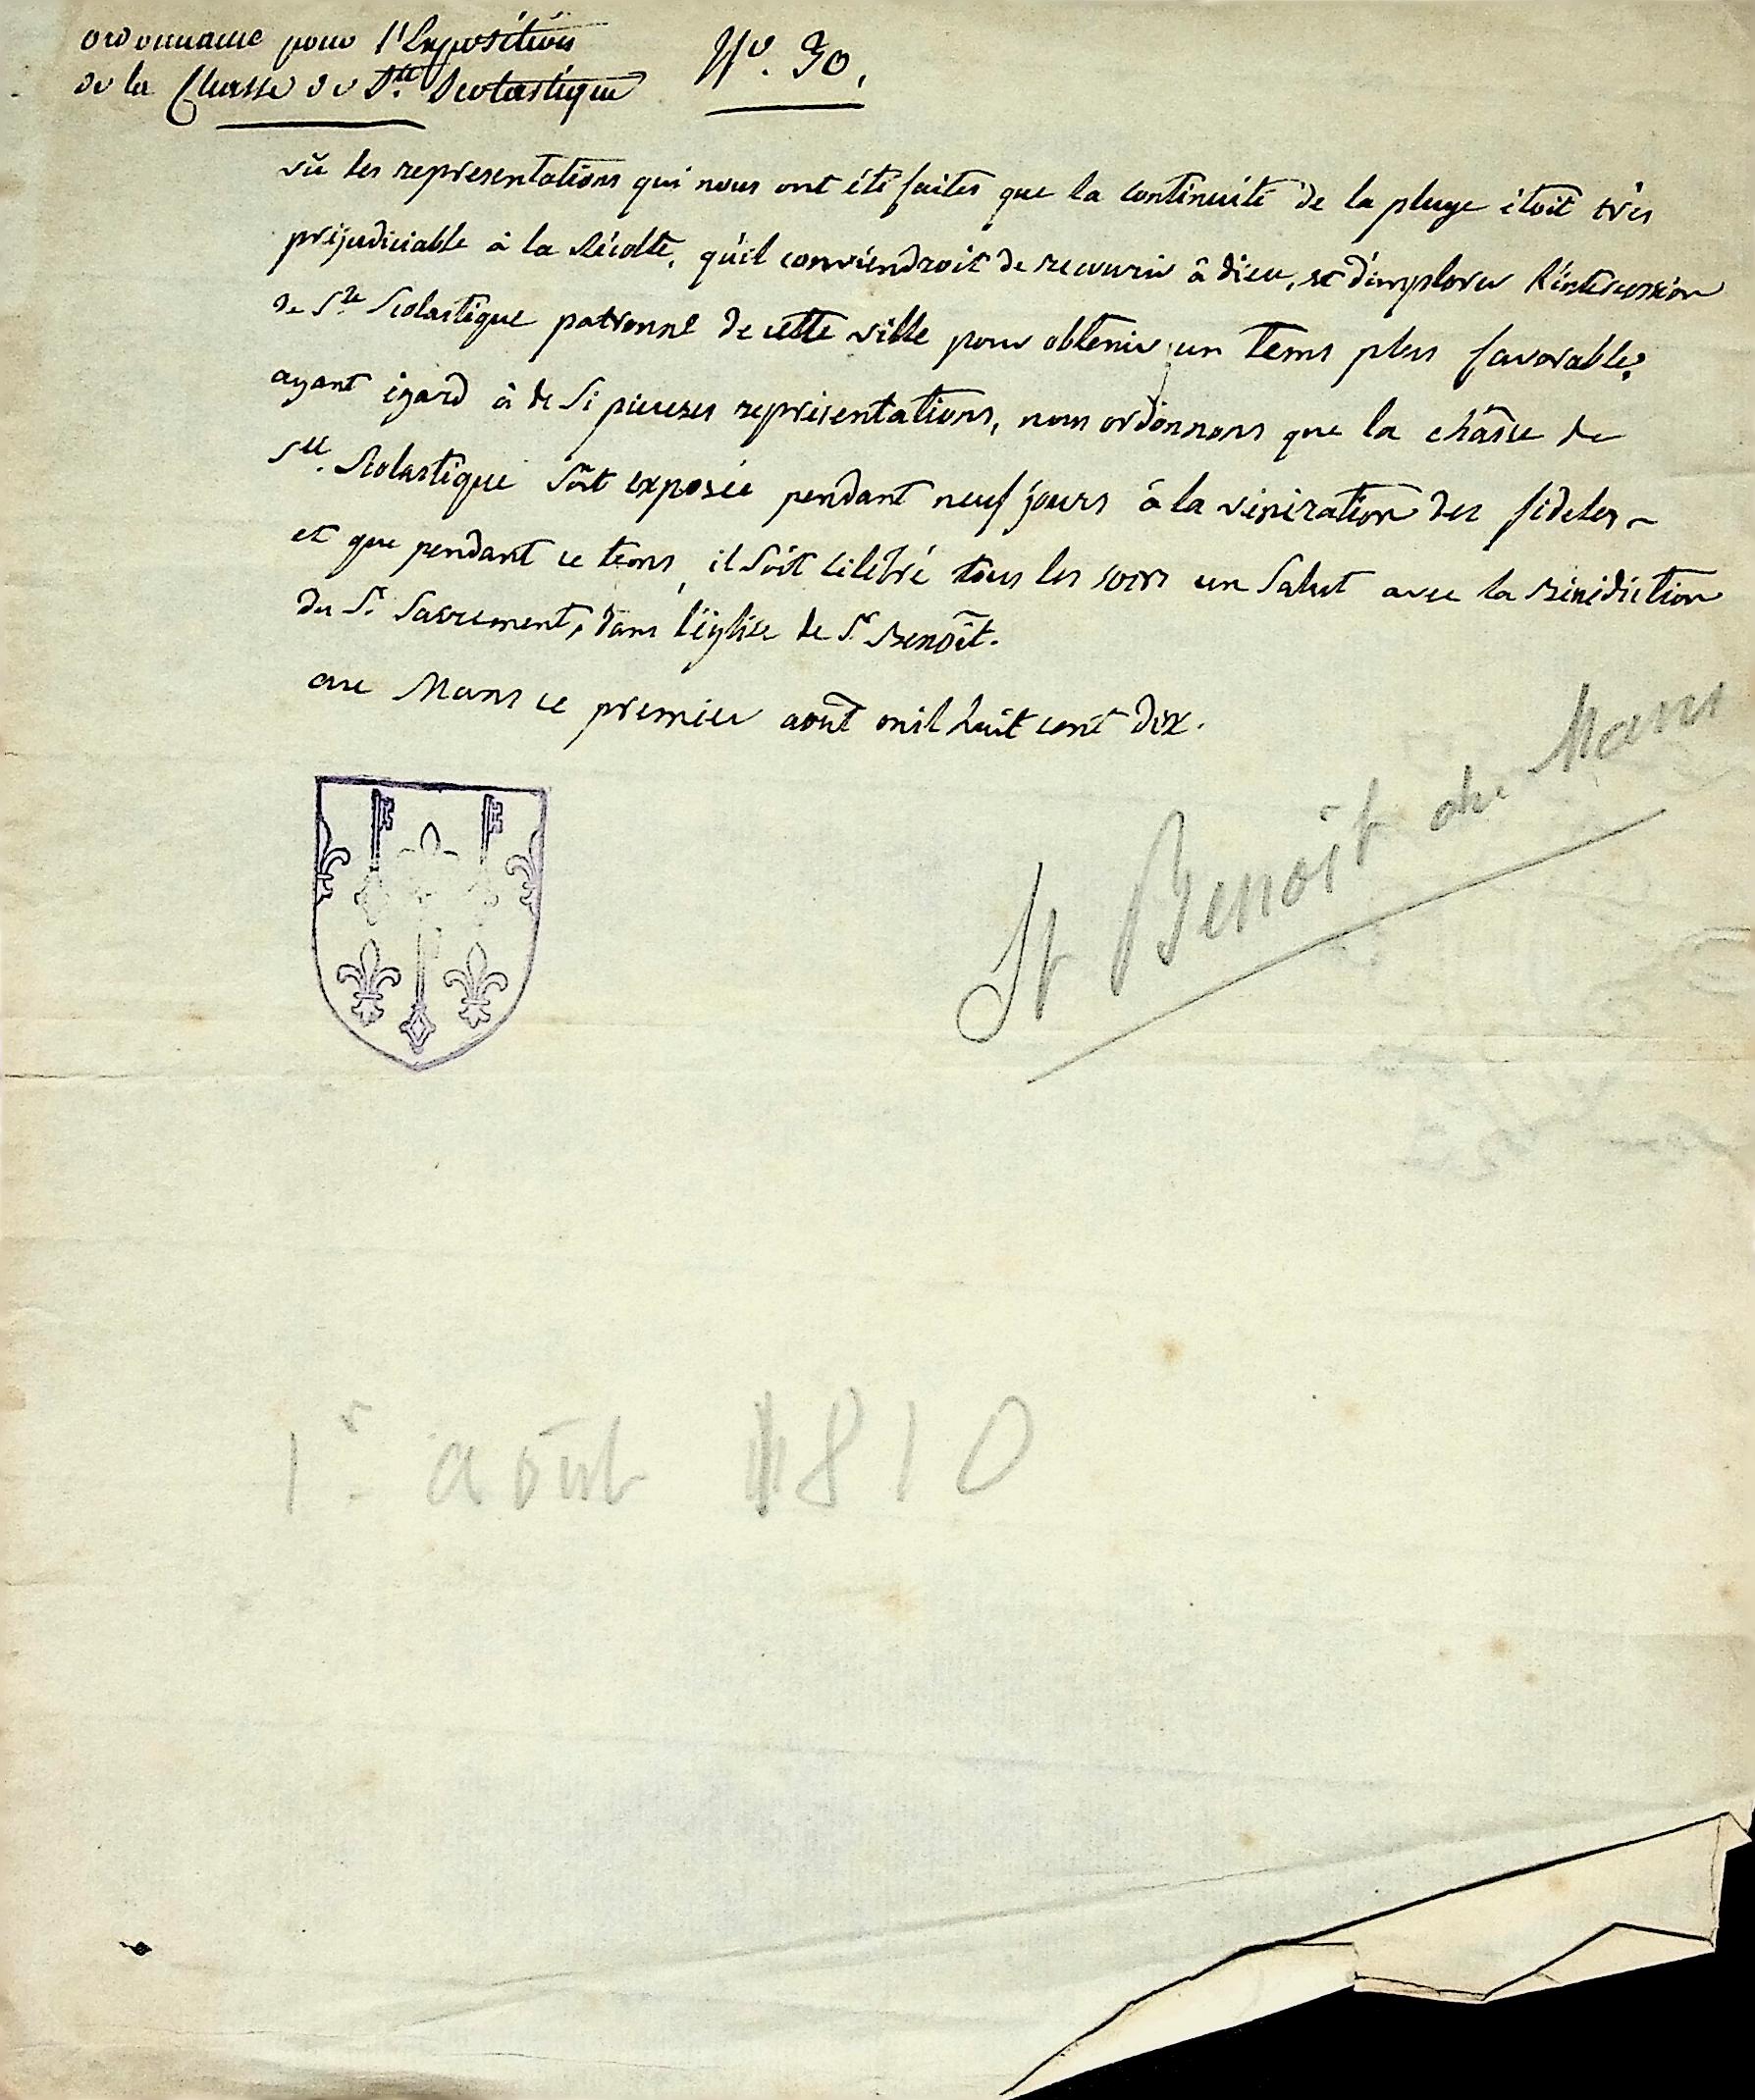 ordonnance pour l'Exposition
de la Chasse de Ste Scolastique
No. 30.
vû les representations qui nous ont été faites que la continuité de la pluye étoit très
préjudiciable à la Récolte, qu'il conviendroit de recourir à dieu, et d'implorer l'intercession
de Ste Scolastique patronne de cette ville pour obtenir un tems plus favorable,
ayant égard à de Si pieuses représentations, nous ordonnons que la châsse de
Ste. Scolastique Soit exposée pendant neuf jours à la vénération des fideles
et que pendant ce tems, il Soit célébré tous les soirs un Salut avec la Bénédiction
du St. Sacrement, dans l'église de St Benoît.
au Mans ce premier août mil huit cent dix.
St Benoît du Mans
1r août 1810